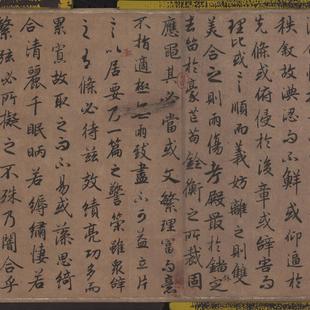 秩叙故淟涊而不鮮或仰逼於
先條或俯侵於後章或辭害而
理比或言順而義妨離之則雙
美合之則兩傷考殿最於錙銖定
去留於豪芒苟銓衡之所裁固
應繩其必當或文繁理富而意
不指適極無兩致盡不可益立片
言以居要乃一篇之警策雖衆辭
之有條必待茲效績亮功多而
累寡故取足而不易或藻思綺
合清麗千眠昞若縟繡悽若
繁絃必所擬之不殊乃闇合乎